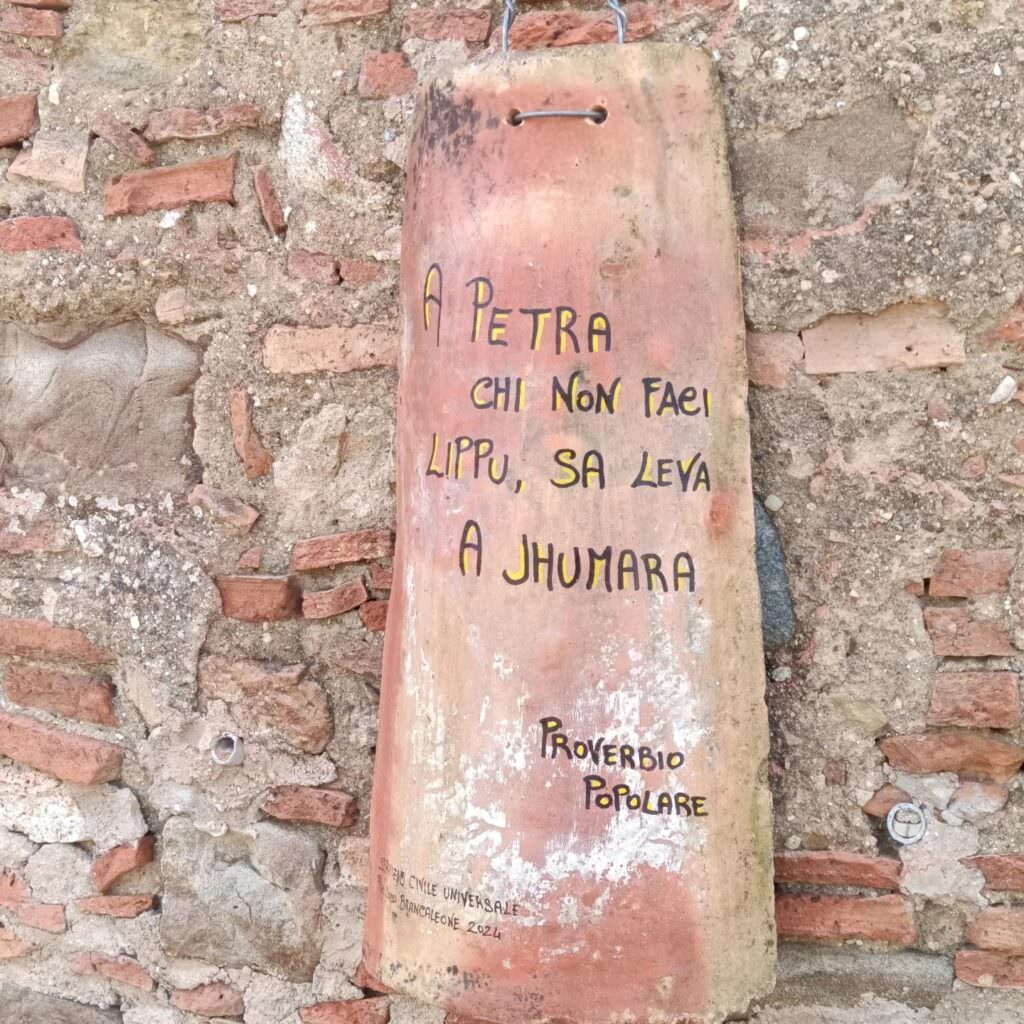 A PETRA
CHI NON FACI
LIPPU, SA LEVA
A JHUMARA
PROVERBIO
POPOLARE
CIVILE UNIVERSALE
BRANCALEONE 2024